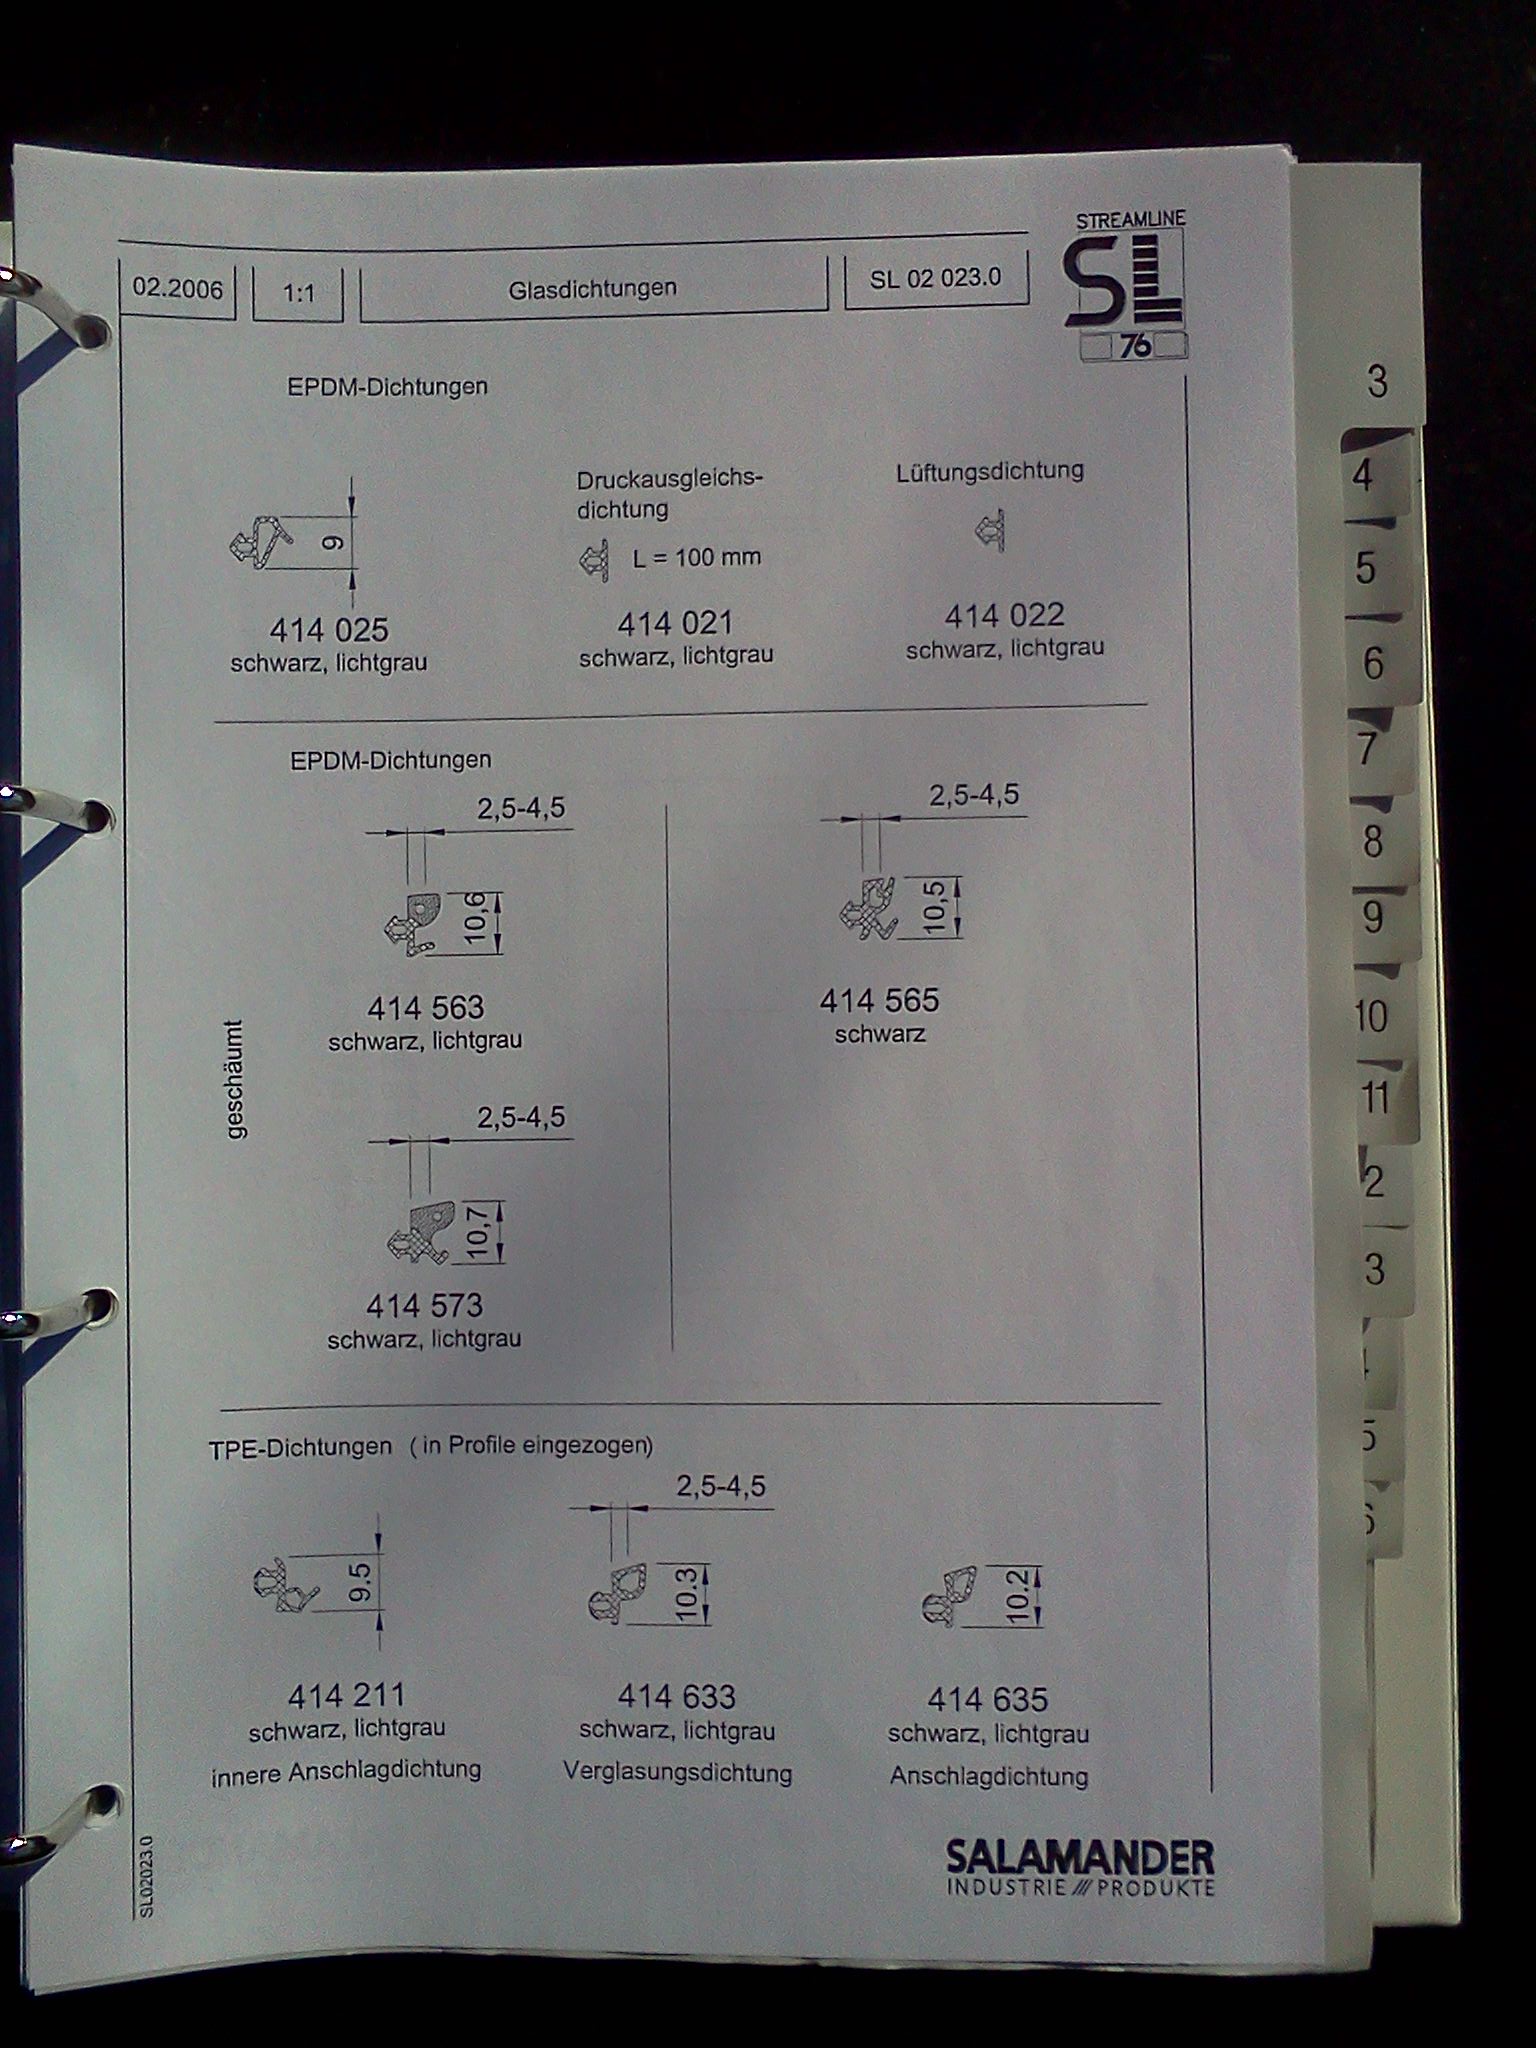 STREAMLINE
SL
76
02.2006
1:1
Glasdichtungen
SL 02 023.0
EPDM-Dichtungen
9
414 025
schwarz, lichtgrau
Druckausgleichs-
dichtung
L = 100 mm
414 021
schwarz, lichtgrau
Lüftungsdichtung
414 022
schwarz, lichtgrau
EPDM-Dichtungen
geschäumt
2,5-4,5
10,6
414 563
schwarz, lichtgrau
2,5-4,5
10,5
414 565
schwarz
2,5-4,5
10,7
414 573
schwarz, lichtgrau
TPE-Dichtungen ( in Profile eingezogen)
9.5
414 211
schwarz, lichtgrau
innere Anschlagdichtung
2,5-4,5
10.3
414 633
schwarz, lichtgrau
Verglasungsdichtung
10.2
414 635
schwarz, lichtgrau
Anschlagdichtung
SL02023.0
SALAMANDER
INDUSTRIE /// PRODUKTE
3
4
5
6
7
8
9
10
11
2
3
5